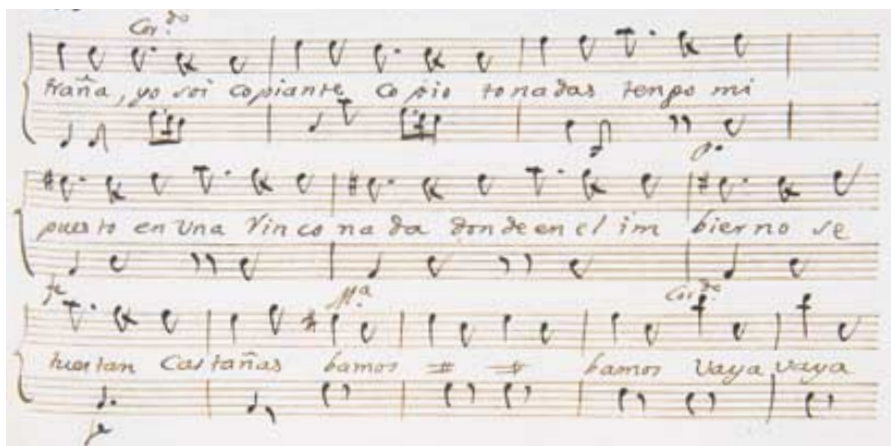 Cor.do
traña, yo soi copiante copio tonadas tengo mi
p.o
puesto en una rinconada donde en el imbierno se
fe M.a Cor.do
tuestan Castañas bamos # # bamos vaya vaya
fe